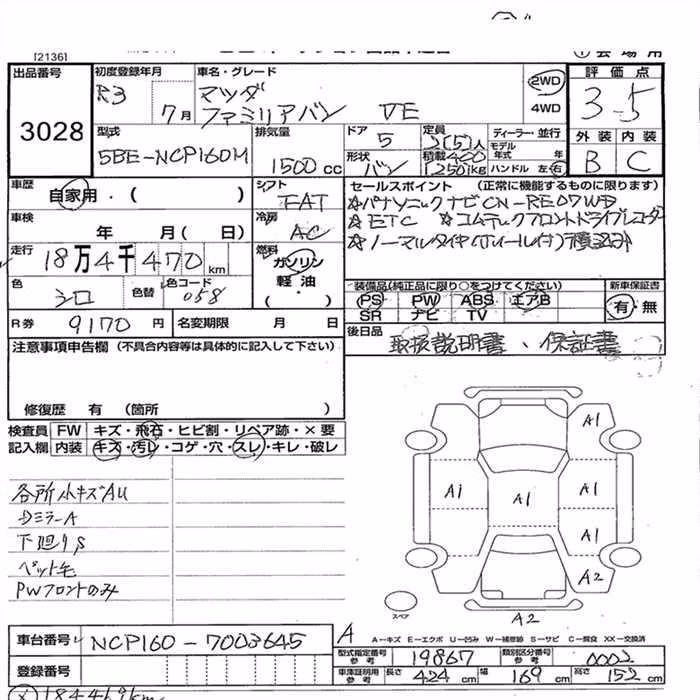 [2136]
① 会場用
出品番号 3028
初度登録年月 R3 7月
車名・グレード マツダ
ファミリアバン DE
2WD
4WD
評価点
3.5
外装 内装
B C
型式 5BE-NCP160M
排気量 1500cc
ドア 5
形状 バン
定員 2(5)人
積載 400(250)kg
ディーラー・並行
モデル年式 年
ハンドル 左・右
車歴 自家用・( )
シフト FAT
車検 年 月( 日)
冷房 AC
走行 18万4千470km
燃料 ガソリン
軽油・
( )
色 シロ
色替
色コード 058
R券 9170円
名変期限 月 日
セールスポイント (正常に機能するものに限ります)
☆パナソニックナビCN-RE07WD
☆ETC ☆コムテックフロントドライブレコーダー
☆ノーマルタイヤ(ホイール付)積込み
装備品(純正品に限り○をつけてください)
PS PW ABS エアB
SR ナビ TV
新車保証書
有・無
後日品 取扱説明書、保証書
注意事項申告欄 (不具合内容等は具体的に記入して下さい)
修復歴 有 (箇所 )
検査員記入欄
FW キズ・飛石・ヒビ割・リペア跡・×要
内装 キズ・汚レ・コゲ・穴・スレ・キレ・破レ
各所小キズAU
ミラーA
下廻りS
ペット毛
PWフロントのみ
A1
A1 A1 A1
A1
A2
スペア
A2
A
A─キズ E─エクボ U─凹み W─補修跡 S─サビ C─腐食 XX─交換済
車台番号 NCP160-7003645
登録番号
型式指定番号 参考 19867
類別区分番号 参考 0002
車庫証明用 参考 長さ 424cm 幅 169cm 高さ 152cm
184469km